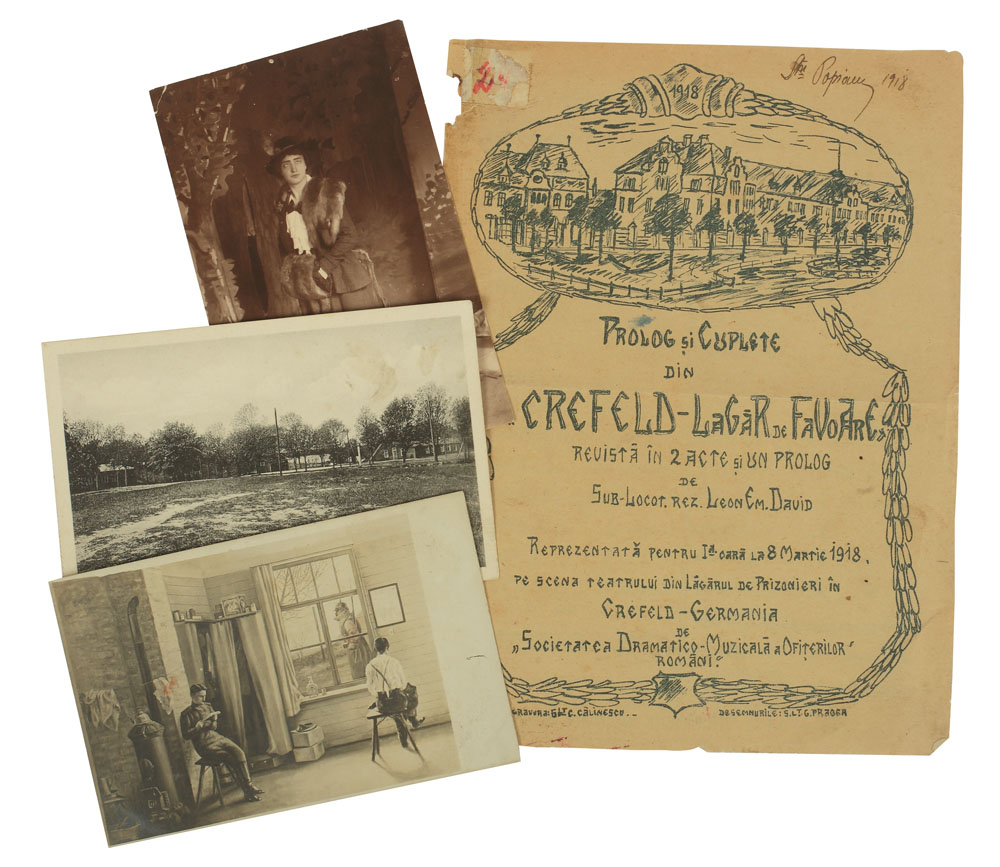 1918
1918
PROLOG și CUPLETE
DIN
„CREFELD-LAGĂR DE FAVOARE”
REVISTĂ ÎN 2 ACTE și UN PROLOG
DE
SUB-LOCOT. REZ. LEON EM. DAVID
REPREZENTATĂ PENTRU Iª OARĂ LA 8 MARTIE 1918,
PE SCENA TEATRULUI DIN LĂGĂRUL DE PRIZONIERI ÎN
CREFELD-GERMANIA
DE
„SOCIETATEA DRAMATICO-MUZICALĂ A OFIȚERILOR
ROMÂNI”
GRAVURA: SLT C. CĂLINESCU.
DESEMNURILE: S.LT G.